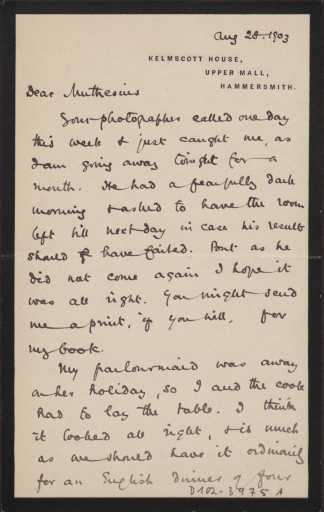 Aug 28. 1903
KELMSCOTT HOUSE,
UPPER MALL,
HAMMERSMITH.
Dear Muthesius
Your photographer called one day
this week & just caught me, as
I am going away tonight for a
month. He had a fearfully dark
morning & asked to have the room
left till next day in case his result
should have failed. But as he
did not come again I hope it
was all right. You might send
me a print, if you will, for
my book.
My parlourmaid was away
on her holiday, so I and the cook
had to lay the table. I think
it looked all right, & is much
as we should have it ordinarily
for an English dinner of four
D102-3975 A